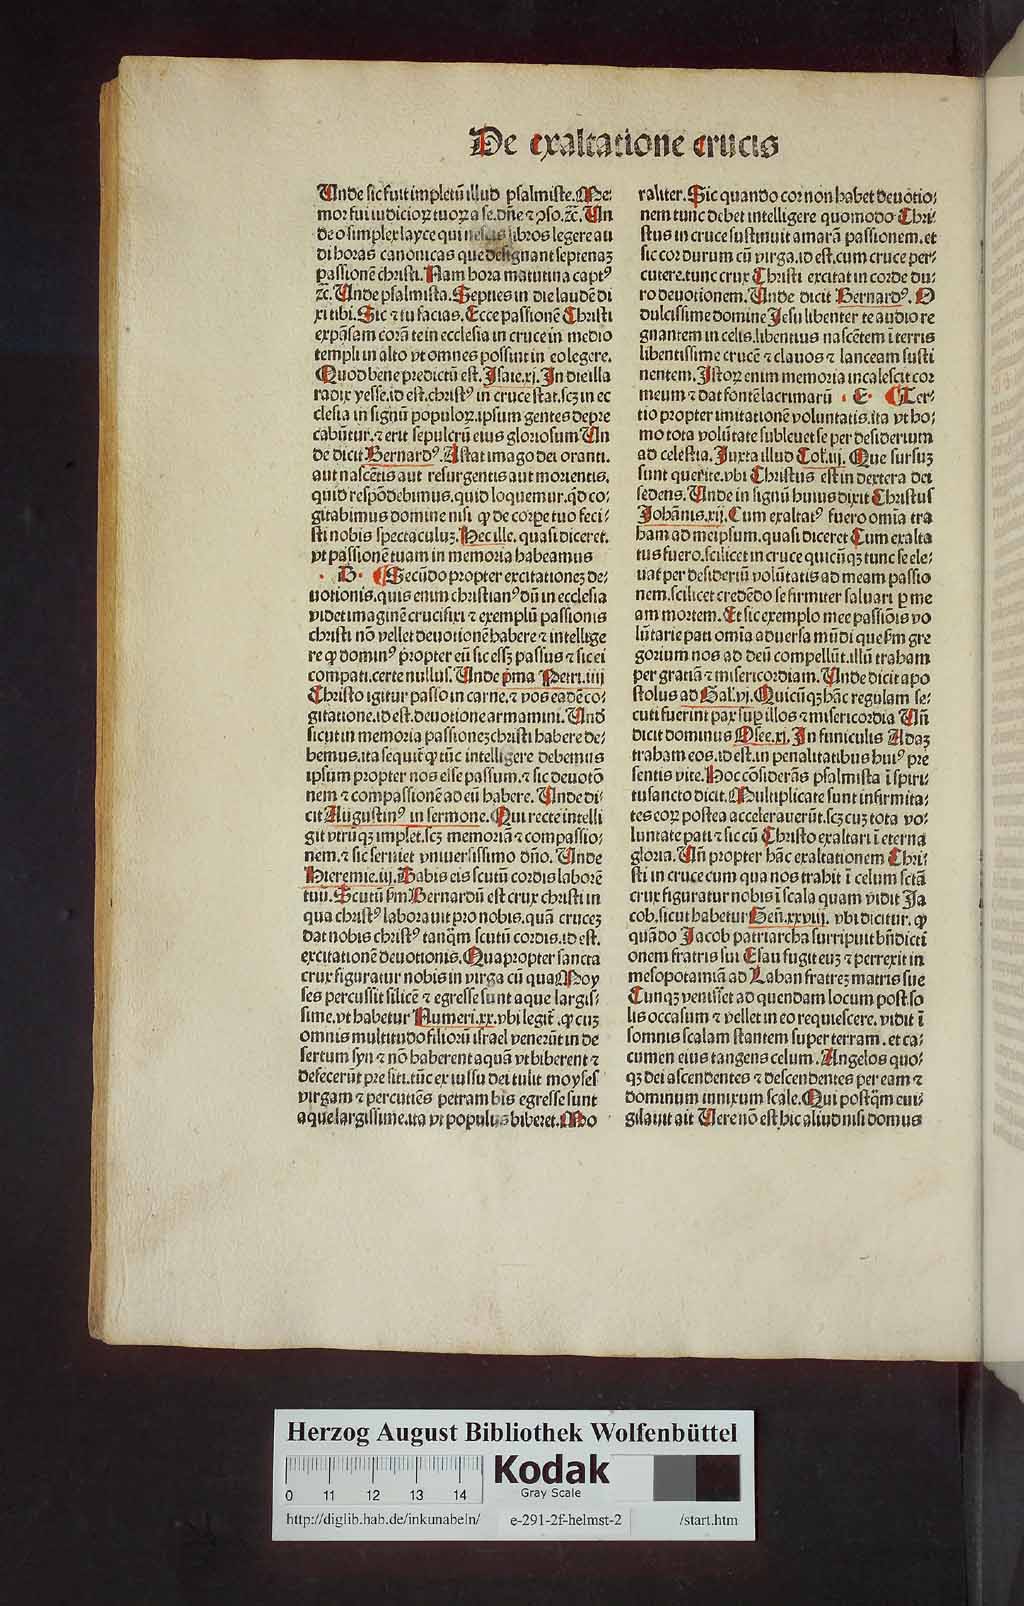 De exaltatione crucis
Unde sic fuit impletū illud psalmiste. Me⸗
mor fui iudicioꝝ tuoꝝ a se. dn̄e ⁊ ꝯso. ⁊c̄. Un
de o simplex layce qui nescis libros legere au
di horas canonicas que designant septenaꝫ
passionē christi. Nam hora matutina capt⁹
⁊c̄. Unde psalmista. Septies in die laudē di
xi tibi. Sic ⁊ tu facias. Ecce passionē Christi
expāsam corā te in ecclesia in cruce in medio
templi in alto vt omnes possunt in eo legere.
Quod bene predictū est. Isaie. xj. In die illa
radix yesse. id est. christ⁹ in cruce stat. scꝫ in ec
clesia in signū populoꝝ. ipsum gentes depre
cabūtur. ⁊ erit sepulcrū eius gloriosum Un
de dicit Bernard⁹. Astat imago dei oranti.
aut nascētis aut resurgentis aut morientis.
quid respōdebimus. quid loquemur. qd̄ co⸗
gitabimus domine nisi ꝙ de corpe tuo feci⸗
sti nobis spectaculuꝫ. Hec ille. quasi diceret.
vt passionē tuam in memoria habeamus
· B · Secūdo propter excitationeꝫ de⸗
uotionis. quis enim christian⁹ dū in ecclesia
videt imaginē crucifixi ⁊ exemplū passionis
christi nō vellet deuotionē habere ⁊ intellige
re ꝙ domin⁹ propter eū sic essꝫ passus ⁊ sic ei
compati. certe nullus. Unde p̄ma Petri. iiij
Christo igitur passo in carne. ⁊ vos eadē co⸗
gitatione. id est. deuotione armamini. Und̄
sicut in memoria passioneꝫ christi habere de⸗
bemus. ita sequit̄ ꝙ tūc intelligere debemus
ipsum propter nos esse passum. ⁊ sic deuotō
nem ⁊ compassionē ad eū habere. Unde di⸗
cit Augustin⁹ in sermone. Qui recte intelli
git vtrūqꝫ implet. scꝫ memoriā ⁊ compassio⸗
nem. ⁊ sic seruiet vniuersissimo dn̄o. Unde
Hieremie. iij. Dabis eis scutū cordis laborē
tuū. Scutū s̄m Bernardū est crux christi in
qua christ⁹ laborauit pro nobis. quā cruceꝫ
dat nobis christ⁹ tanq̄m scutū cordis. id est.
excitationē deuotionis. Quapropter sancta
crux figuratur nobis in virga cū qua Moy
ses percussit silicē ⁊ egresse sunt aque largis⸗
sime. vt habetur Numeri. xx. vbi legit̄. ꝙ cuꝫ
omnis multitudo filiorū israel venerūt in de
sertum syn ⁊ nō haberent aquā vt biberent ⁊
defecerūt pre siti. tūc ex iussu dei tulit moyses
virgam ⁊ percutiēs petram bis egresse sunt
aque largissime. ita vt populus biberet. Mo
raliter. Sic quando cor non habet deuotio⸗
nem tunc debet intelligere quomodo Chri⸗
stus in cruce sustinuit amarā passionem. et
sic cor durum cū virga. id est. cum cruce per⸗
cutere. tunc crux Christi excitat in corde du⸗
ro deuotionem. Unde dicit Bernard⁹. O
dulcissime domine Jesu libenter te audio re
gnantem in celis. libentius nascētem ī terris
libentissime crucē ⁊ clauos ⁊ lanceam susti
nentem. Istoꝝ enim memoria incalescit cor
meum ⁊ dat fontē lacrimarū · E · Ter⸗
tio propter imitationē voluntatis. ita vt ho⸗
mo tota volūtate subleuet se per desiderium
ad celestia. Juxta illud Col̄. iij. Que sursuꝫ
sunt querite. vbi Christus est in dextera dei
sedens. Unde in signū huius dixit Christus
Johānis. xij. Cum exaltat⁹ fuero omīa tra
ham ad meipsum. quasi diceret Cum exalta
tus fuero. scilicet in cruce quicūqꝫ tunc se ele⸗
uat per desideriū volūtatis ad meam passio
nem. scilicet credēdo se firmiter saluari ꝑ me
am mortem. Et sic exemplo mee passiōis vo
lūtarie pati omīa aduersa mūdi que s̄m gre
gorium nos ad deū compellūt. illū traham
per gratiā ⁊ misericordiam. Unde dicit apo
stolus ad Gal̄. vj. Quicūqꝫ hāc regulam se⸗
cuti fuerint pax sup̄ illos ⁊ misericordia Un̄
dicit dominus Osee. xj. In funiculis Adaꝫ
traham eos. id est. in penalitatibus hui⁹ pre
sentis vite. Hoc cōsiderās psalmista ī spiri⸗
tusancto dicit. Multiplicate sunt infirmita⸗
tes eoꝝ postea accelerauerūt. scꝫ cuꝫ tota vo⸗
luntate pati ⁊ sic cū Christo exaltari ī eterna
gloria. Un̄ propter hāc exaltationem Chri⸗
sti in cruce cum qua nos trahit ī celum sctā
crux figuratur nobis ī scala quam vidit Ja
cob. sicut habetur Gen̄. xxviij. vbi dicitur. ꝙ
quādo Jacob patriarcha surripuit bn̄dicti
onem fratris sui Esau fugit euꝫ ⁊ perrexit in
mesopotamiā ad Laban fratreꝫ matris sue
Cunqꝫ venisset ad quendam locum post so
lis occasum ⁊ vellet in eo requiescere. vidit ī
somnis scalam stantem super terram. et ca⸗
cumen eius tangens celum. Angelos quo⸗
qꝫ dei ascendentes ⁊ descendentes per eam ⁊
dominum innixum scale. Qui postq̄m eui⸗
gilauit ait Uere nō est hic aliud nisi domus
Herzog August Bibliothek Wolfenbüttel
0 11 12 13 14
Kodak
Gray Scale
http://diglib.hab.de/inkunabeln/ e-291-2f-helmst-2 /start.htm